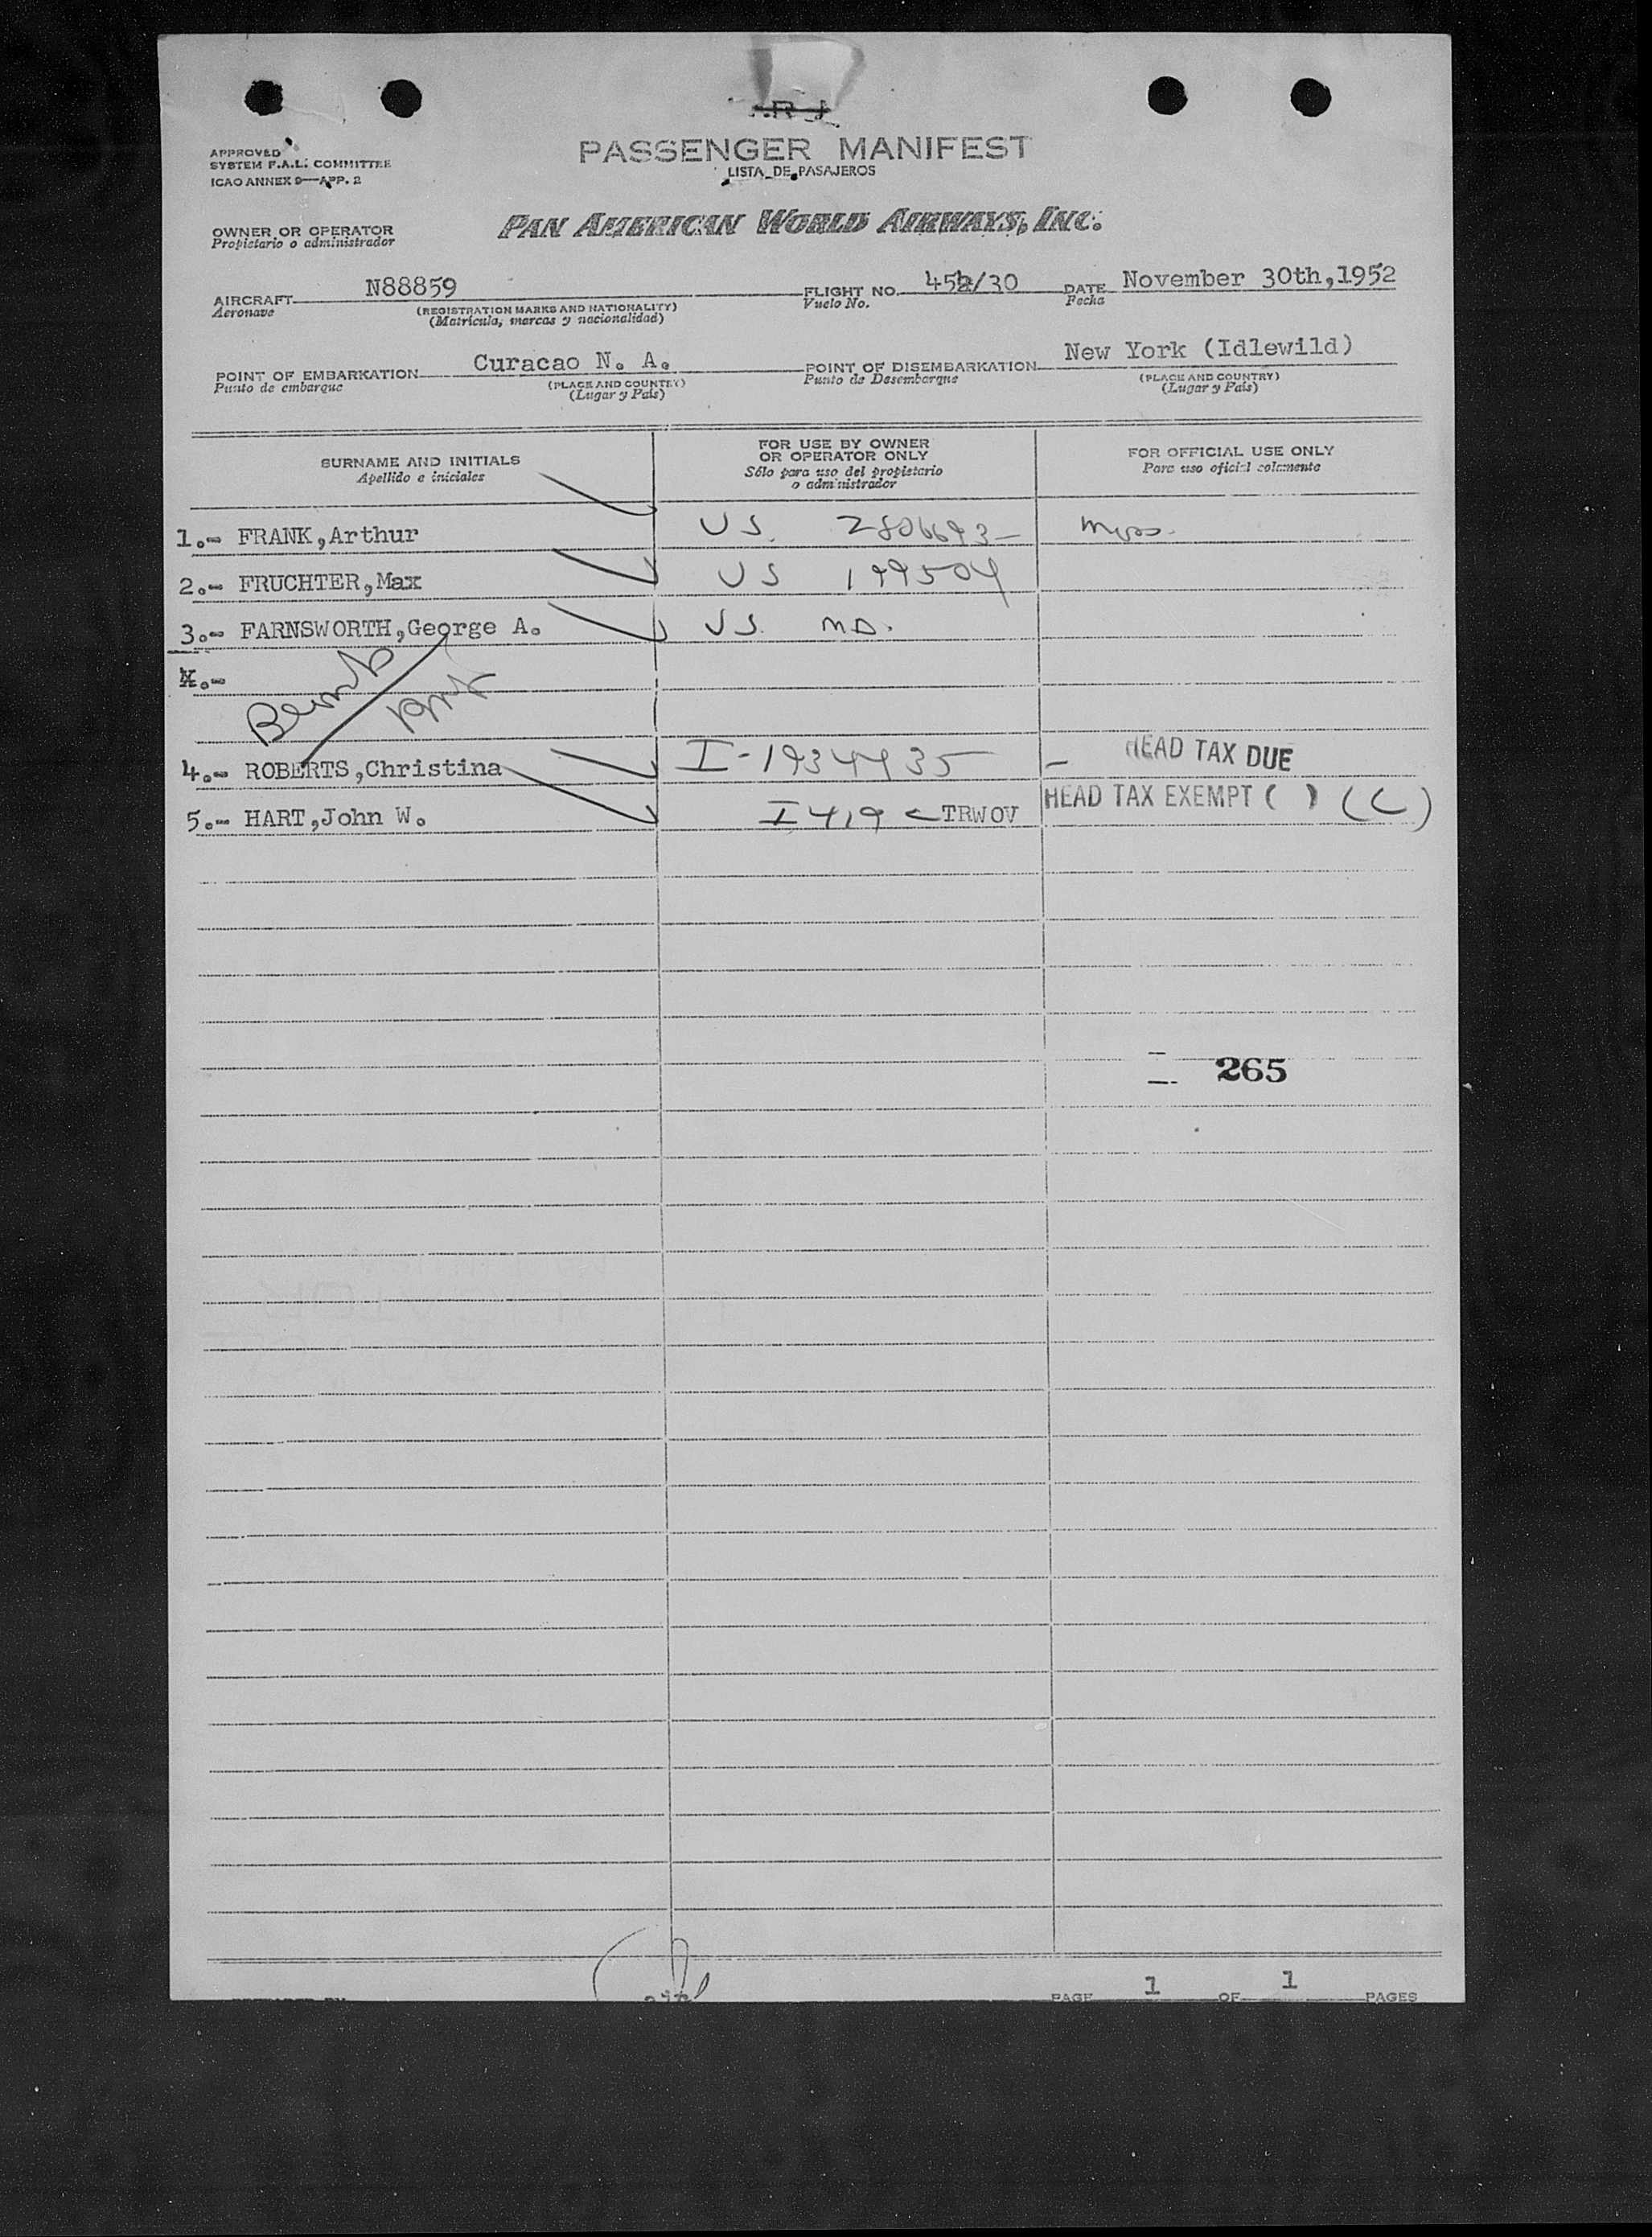 PASSENGER MANIFEST
LISTA DE PASAJEROS
APPROVED
SYSTEM F.A.L. COMMITTEE
ICAO ANNEX 9—APP. 2
PAN AMERICAN WORLD AIRWAYS, INC.
OWNER OR OPERATOR
Propietario o administrador
AIRCRAFT N88859 FLIGHT NO. /30 DATE November 30th,1952
Aeronave (REGISTRATION MARKS AND NATIONALITY) Vuelo No. Fecha
(Matrícula, marcas y nacionalidad)
POINT OF EMBARKATION Curacao N. A. POINT OF DISEMBARKATION New York (Idlewild)
Punto de embarque (PLACE AND COUNTRY) Punto de Desembarque (PLACE AND COUNTRY)
(Lugar y País) (Lugar y País)
SURNAME AND INITIALS
Apellido e iniciales
FOR USE BY OWNER
OR OPERATOR ONLY
Sólo para uso del propietario
o administrador
FOR OFFICIAL USE ONLY
Para uso oficial solamente
1.- FRANK,Arthur US.
2.- FRUCHTER,Max US 199504
3.- FARNSWORTH,George A. US.
4.- ROBERTS,Christina HEAD TAX DUE
5.- HART,John W. I 419 TRWOV HEAD TAX EXEMPT ( )
265
PAGE 1 OF 1 PAGES